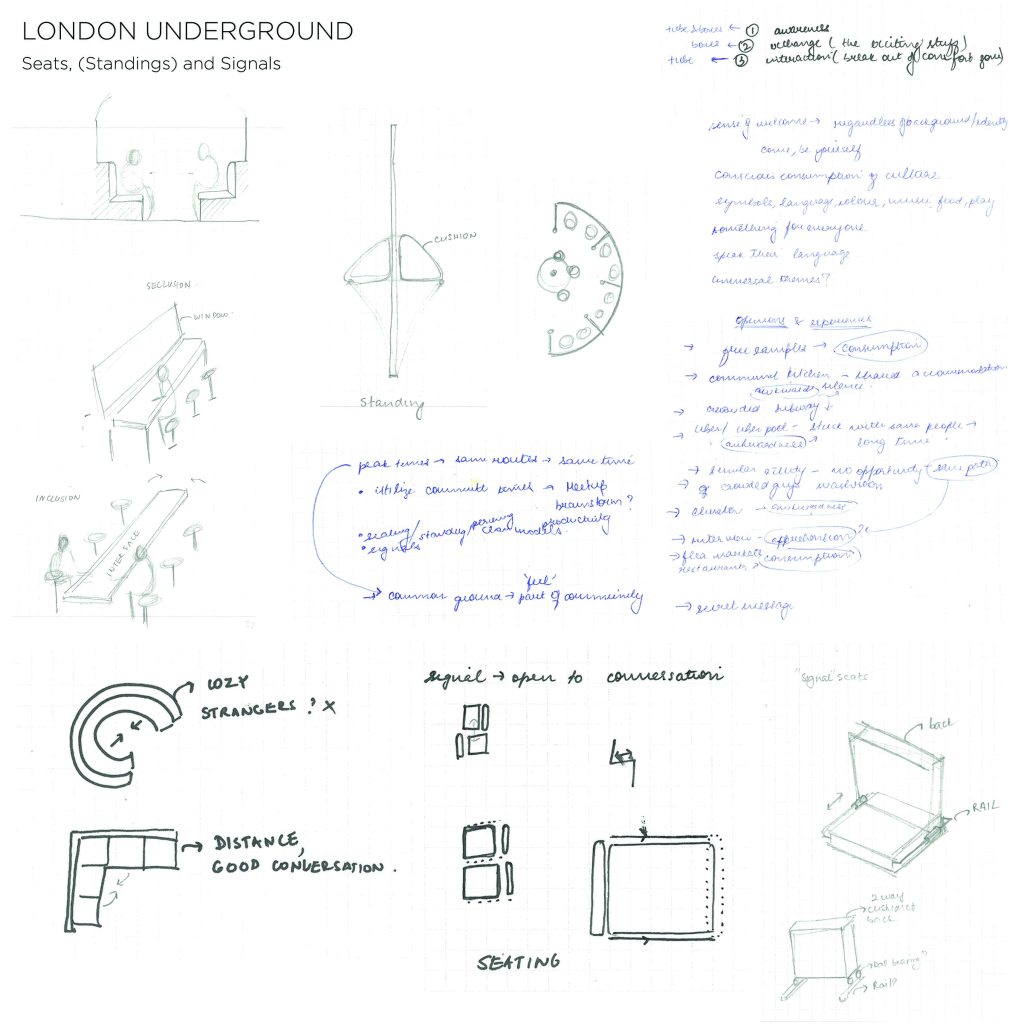 LONDON UNDERGROUND
Seats, (Standings) and Signals
tube & bores ← ① awareness
bores ← ② exchange ( the exciting stuff)
tube ← ③ interaction ( break out of comfort zone)
sense of welcome → regardless of background/identity
come, be yourself
conscious consumption of culture.
symbols, language, colours, music, food, play
something for everyone
speak their language
universal themes?
SECLUSION.
WINDOW.
CUSHION
Standing
INCLUSION
INTERFACE
peak times → same routes → same time
• utilize commute times → Meetup
brainstorm?
productivity
• seating/standing/
• signals
→ common ground → part of community
'feel'
& experiences
→ free samples → consumption
→ communal kitchen - shared accommodation
awkward silence.
→ crowded subway
→ uber/ uber pool - stuck with same people →
awkwardness long time
→ similar - no opportunity - same path
→ crowded washroom
→ elevator → awkwardness
→ interview - apprehension
→ flea markets consumption
restaurants
→ secret message
COZY
STRANGERS? X
DISTANCE,
GOOD CONVERSATION.
signal → open to conversation
SEATING
"Signal" seats
back
RAIL
2 way
cushioned
ball bearing?
Rail?